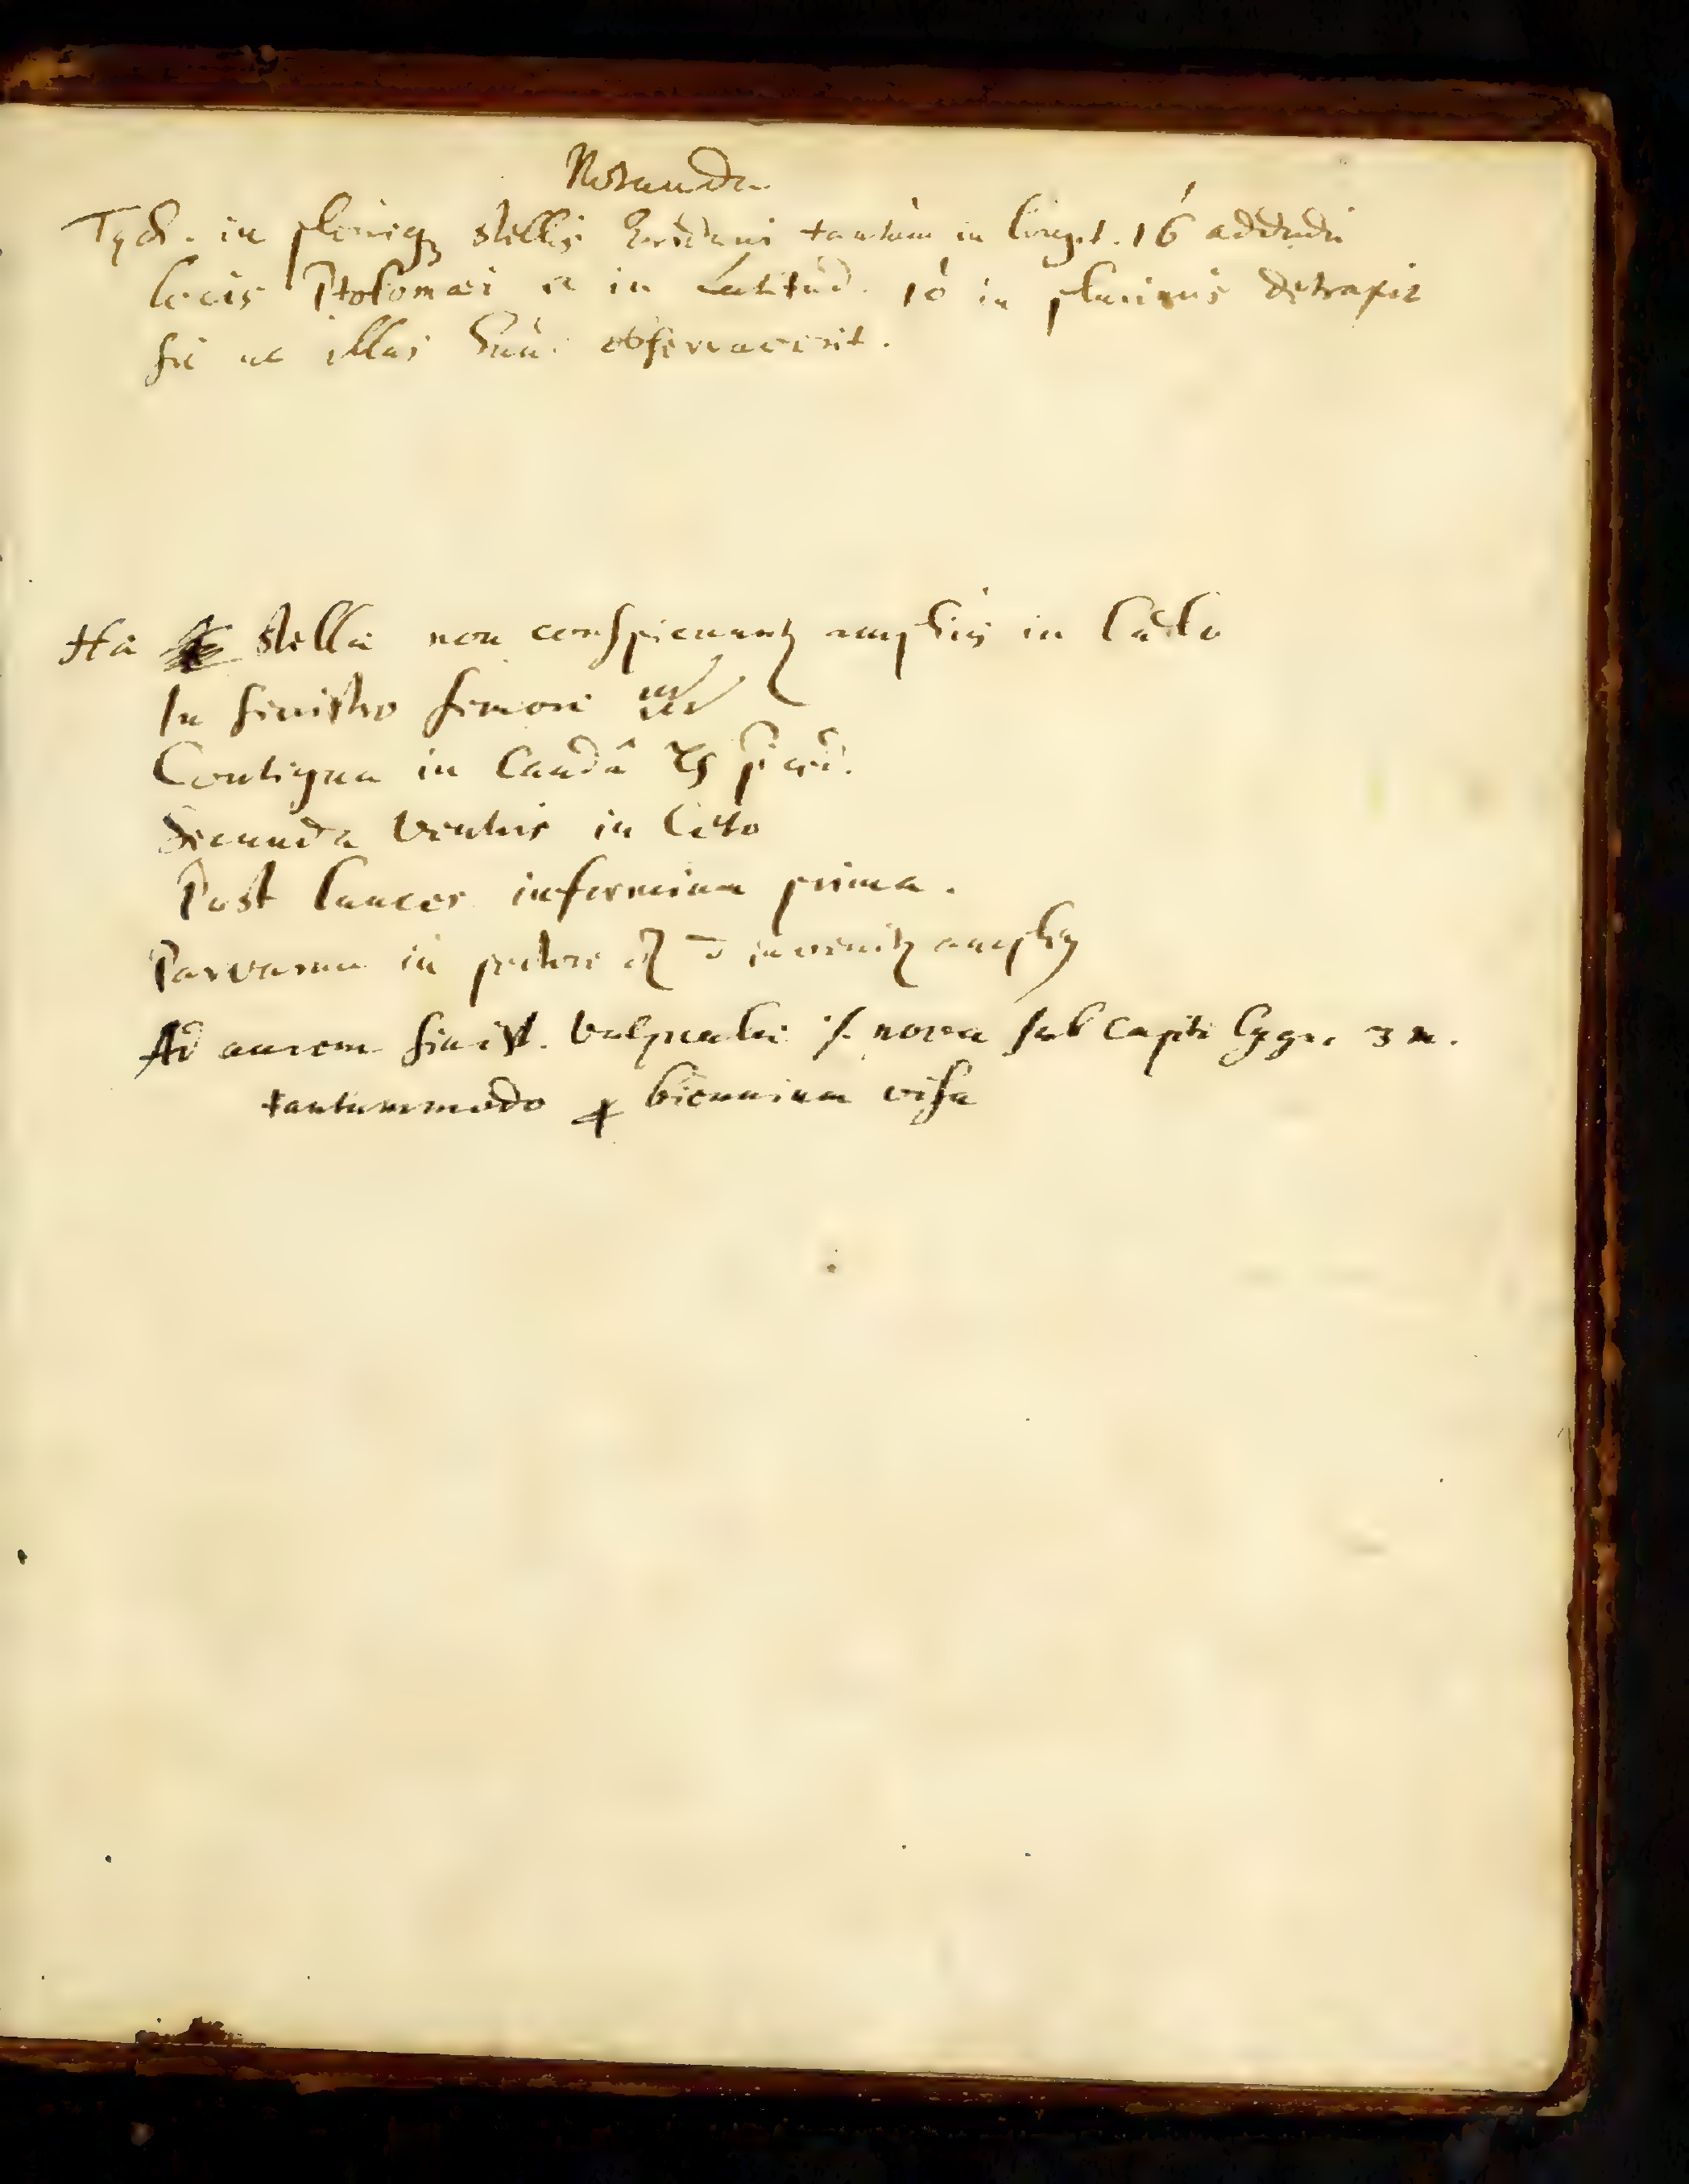 Notanda
Tych. in plerisq; stellis Eridani tantùm in longit. 16' addidit
locis Ptolomæi et in Latitud. 10' in plurimis detraxit
sic ac illas observaverit.
Hæ stellæ non conspicuunt amplius in Cælo
In sinistro femore ♒
Contigua in Caudâ ♑
Secunda Ventris in Ceto
Post lances informium prima.
Parvarum in pectore invenit amplius
Ad aurem sinist. Vulpeculæ nova sub capite Cygni 3 m.
tantummodo biennium visa